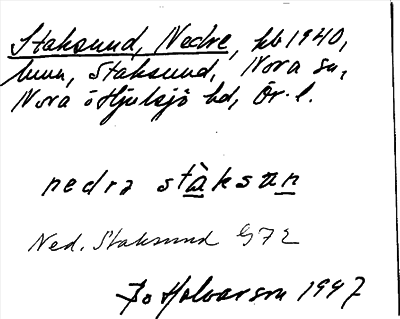 Staksund, Nedre, kb 1940,
hmn, Staksund, Nora sn,
Nora o Hjulsjö bd, Ör. l.
nedra stàksun
Ned. Staksund G72
Jo Halvarson 1947